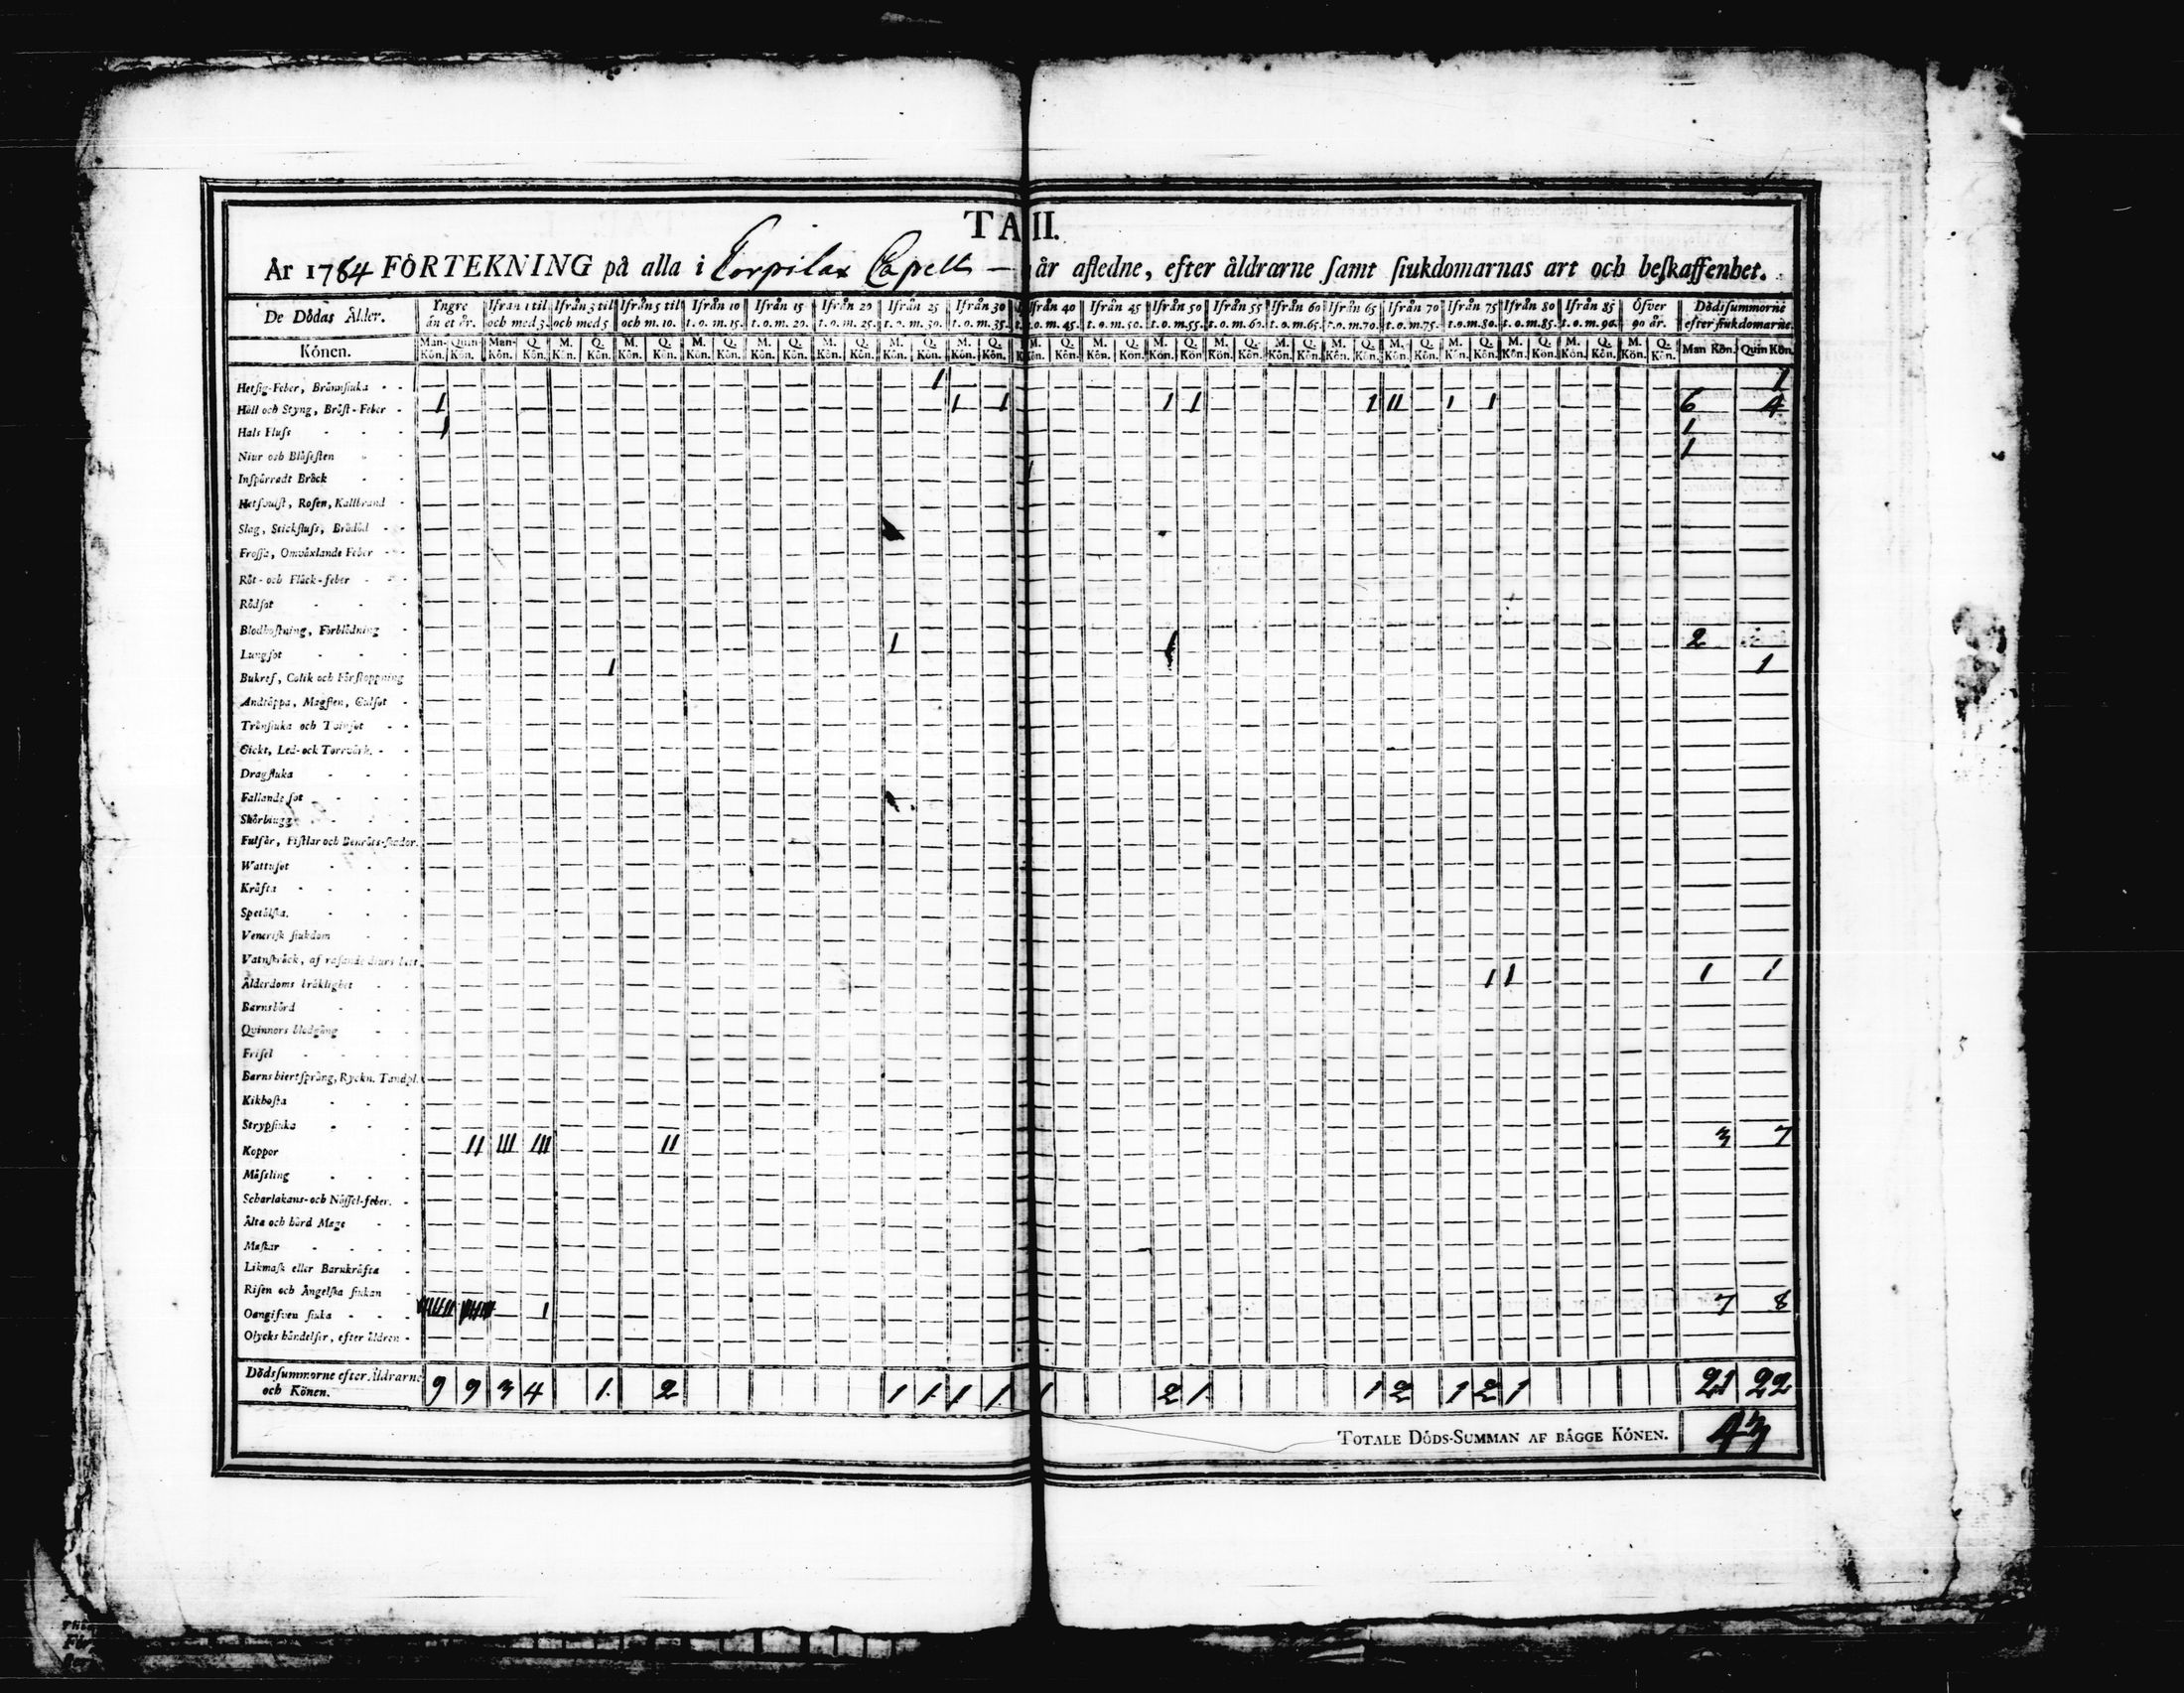 TA II.
År 1764 FÖRTEKNING på alla i Corpilax Capell — år afledne, efter åldrarne samt siukdomarnas art och beskaffenhet.
De Dödas Ålder. Yngre än et år. Ifrån 1 til och med 3. Ifrån 3 til och med 5 Ifrån 5 til och m. 10. Ifrån 10 t. o. m. 15. Ifrån 15 t. o. m. 20. Ifrån 20 t. o. m. 25. Ifrån 25 t. o. m. 30. Ifrån 30 t. o. m. 35. Ifrån 40 t. o. m. 45. Ifrån 45 t. o. m. 50. Ifrån 50 t. o. m. 55. Ifrån 55 t. o. m. 60. Ifrån 60 t. o. m. 65. Ifrån 65 t. o. m. 70. Ifrån 70 t. o. m. 75. Ifrån 75 t. o. m. 80. Ifrån 80 t. o. m. 85. Ifrån 85 t. o. m. 90. Öfver 90 år. Dödssummorne efter siukdomarne.
Könen. Man-Kön. Quin-Kön. Man-Kön. Q. Kön. M. Kön. Q. Kön. M. Kön. Q. Kön. M. Kön. Q. Kön. M. Kön. Q. Kön. M. Kön. Q. Kön. M. Kön. Q. Kön. M. Kön. Q. Kön. M. Kön. Q. Kön. M. Kön. Q. Kön. M. Kön. Q. Kön. M. Kön. Q. Kön. M. Kön. Q. Kön. M. Kön. Q. Kön. M. Kön. Q. Kön. M. Kön. Q. Kön. M. Kön. Q. Kön. M. Kön. Q. Kön. M. Kön. Q. Kön. Man Kön. Quin Kön.
Hetsig-Feber, Brännsiuka 1 1
Håll och Styng, Bröst-Feber 1 1 1 1 1 1 II 1 1 6 4
Hals Fluss 1 1
Niur och Blåsesten 1
Inspärradt Bråck 1
Hetsvulst, Rosen, Kallbrand
Slag, Stickfluss, Brådöd
Frossa, Omväxlande Feber
Röt- och Fläck-feber
Rödsot
Blodhostning, Förblödning
Lungsot 1 1 2
Bukref, Colik och Förstoppning 1 1
Andtäppa, Magsten, Gulsot
Trånsiuka och Tvinsot
Gickt, Led- ock Torrvärk.
Dragsiuka
Fallande sot
Skörbiugg
Fulsår, Fistlar och Benröts-skador.
Wattusot
Kräfta
Spetälska.
Venerisk siukdom
Vatnskräck, af rasande diurs bett
Ålderdoms bräklighet 1 1 1 1
Barnsbörd
Quinnors blodgång
Frisel
Barns hiertsprång, Ryckn. Tandpl.
Kikhosta
Strypsiuka
Koppor II III III II 3 7
Mässling
Scharlakans- och Nässel-feber.
Älta och hård Mage
Maskar
Likmask eller Barnkräfta
Risen och Ängelska siukan
Oangifven siuka 1 7 8
Olycks händelser, efter åldren
Dödssummorne efter Åldrarne och Könen. 9 9 3 4 1. 2 1 1 1 1 1 2 1. 1 2 1 2 1 21 22
TOTALE DÖDS-SUMMAN AF BÄGGE KÖNEN. 43